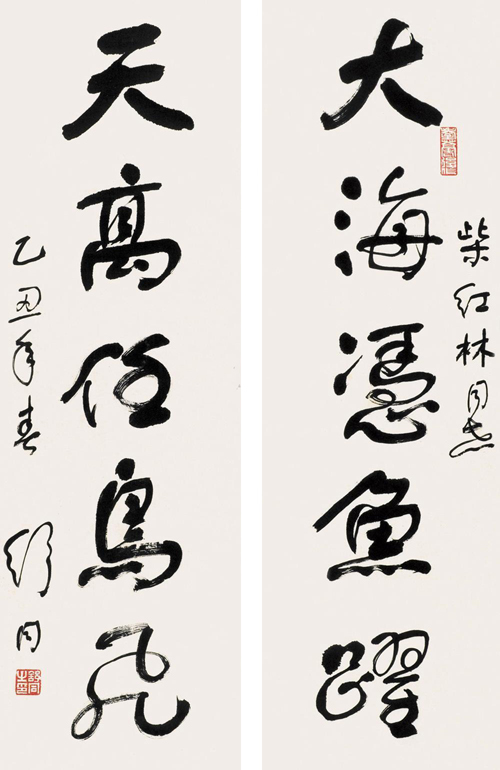 柴红林同志
大海憑魚躍
天高任鳥飛
乙丑年春
舒同